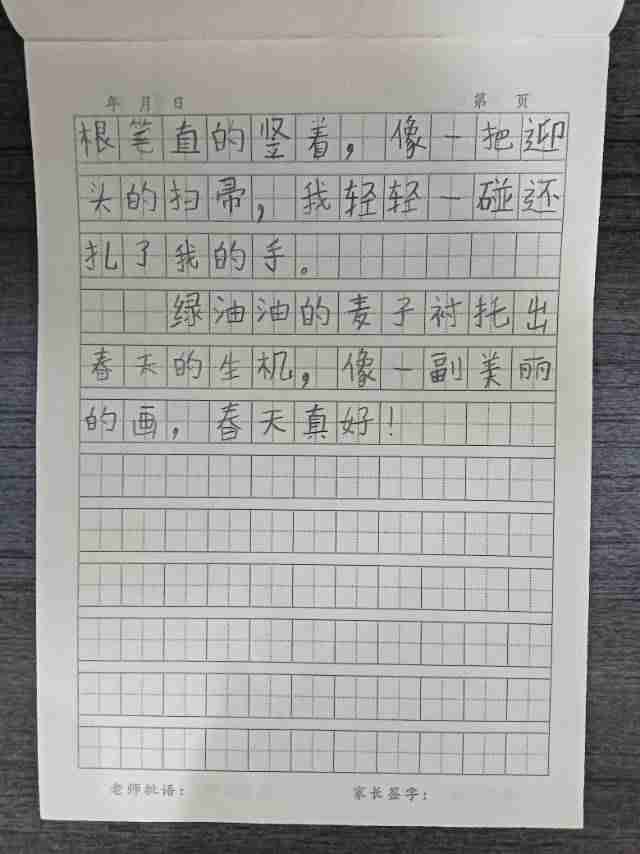 年 月 日 第 页
根笔直的竖着，像一把迎
头的扫帚，我轻轻一碰还
扎了我的手。
绿油油的麦子衬托出
春天的生机，像一副美丽
的画，春天真好！
老师批语： 家长签字：